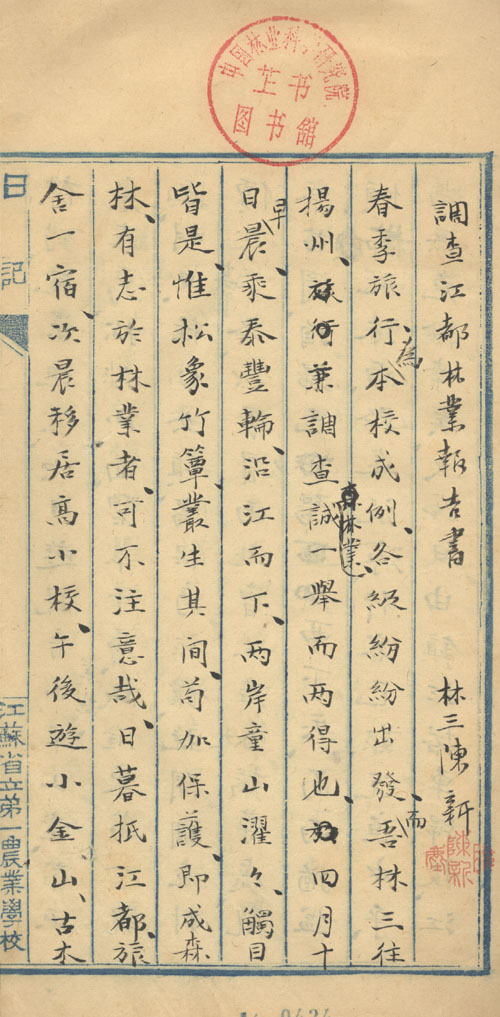 中国林业科学研究院
图书馆
調查江都林業報告書 林三陳新
春季旅行、為本校成例、各級紛紛出發、而吾林三往
揚州、旅行兼調查森林業、誠一舉而兩得也、四月十
日早晨、乘泰豐輪、沿江而下、兩岸童山濯々、觸目
皆是、惟松象竹簟叢生其間、苟加保護、即成森
林、有志於林業者、可不注意哉、日暮抵江都、旅
舍一宿、次晨移居高小校、午後遊小金山、古木
日記
江蘇省立第一農業學校